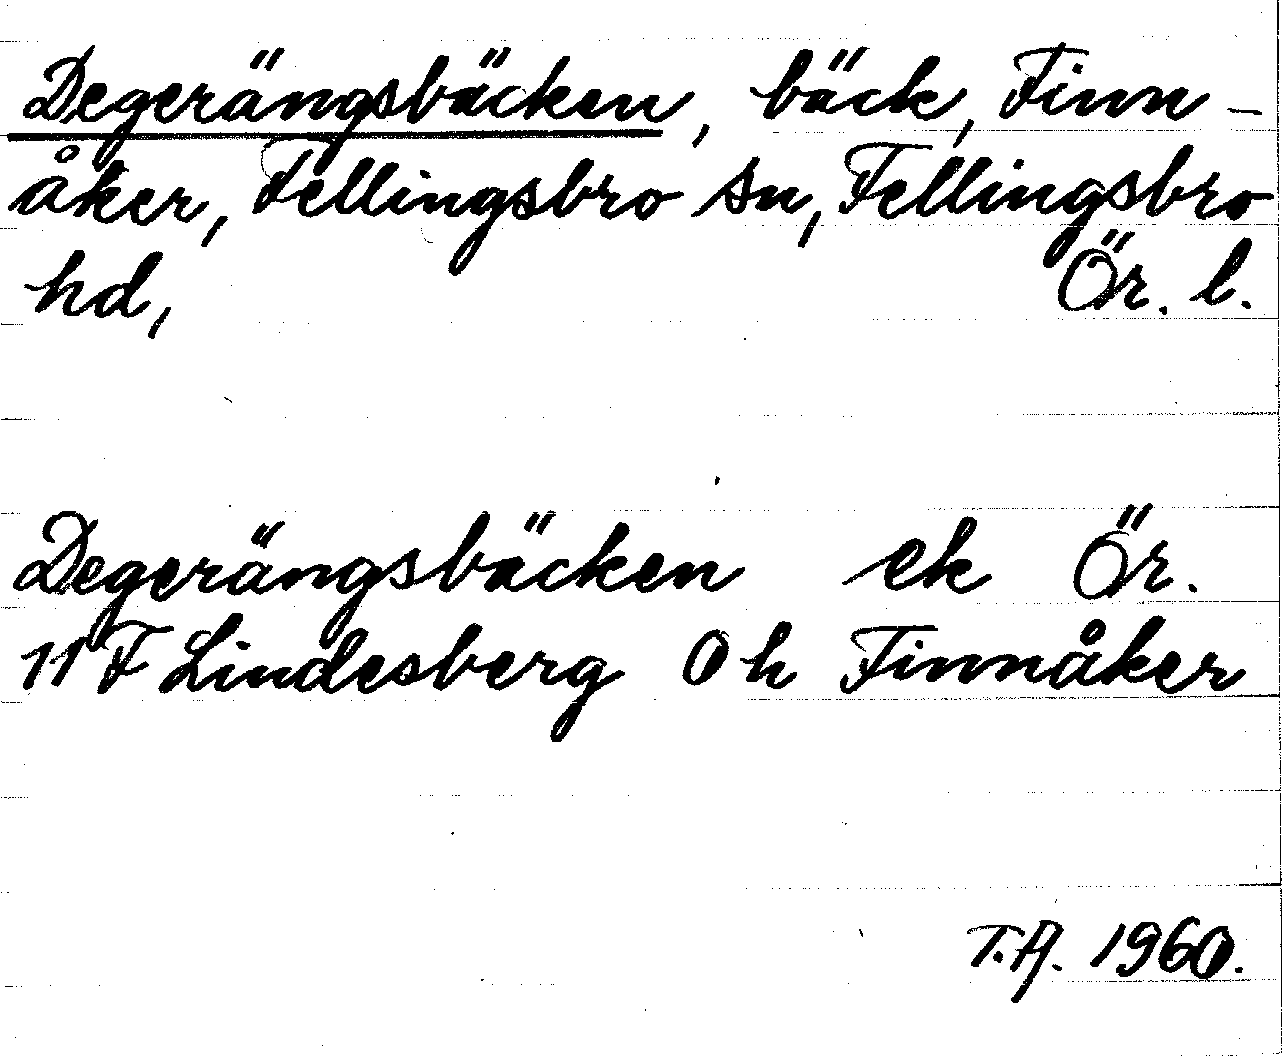 Degerängsbäcken, bäck, Finn-
åker, Fellingsbro sn, Fellingsbro
hd, Ör. l.
Degerängsbäcken ek Ör.
11 F Lindesberg 0 h Finnåker
T.A. 1960.